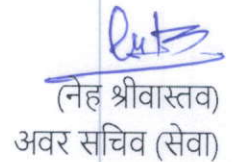 (नेह श्रीवास्तव)
अवर सचिव (सेवा)